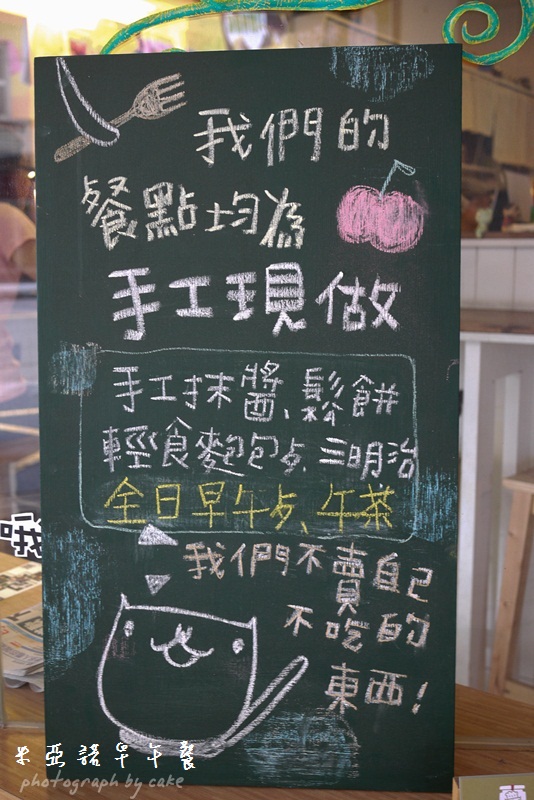 我們的
餐點均為
手工現做
手工抹醬、鬆餅
輕食麵包点、三明治
全日早午点、午茶
我們不賣自己
不吃的
東西!
哦
米亞諾早午餐
photograph by cake